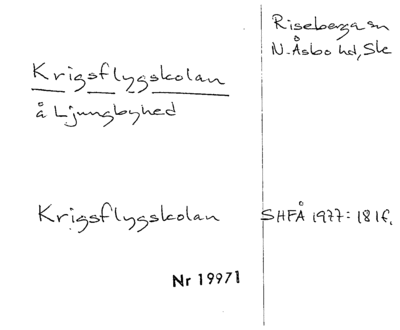 Riseberga sn
N. Åsbo hd, Sk
Krigsflygskolan
å Ljungbyhed
Krigsflygskolan SHFÅ 1977: 18 f.
Nr 19971